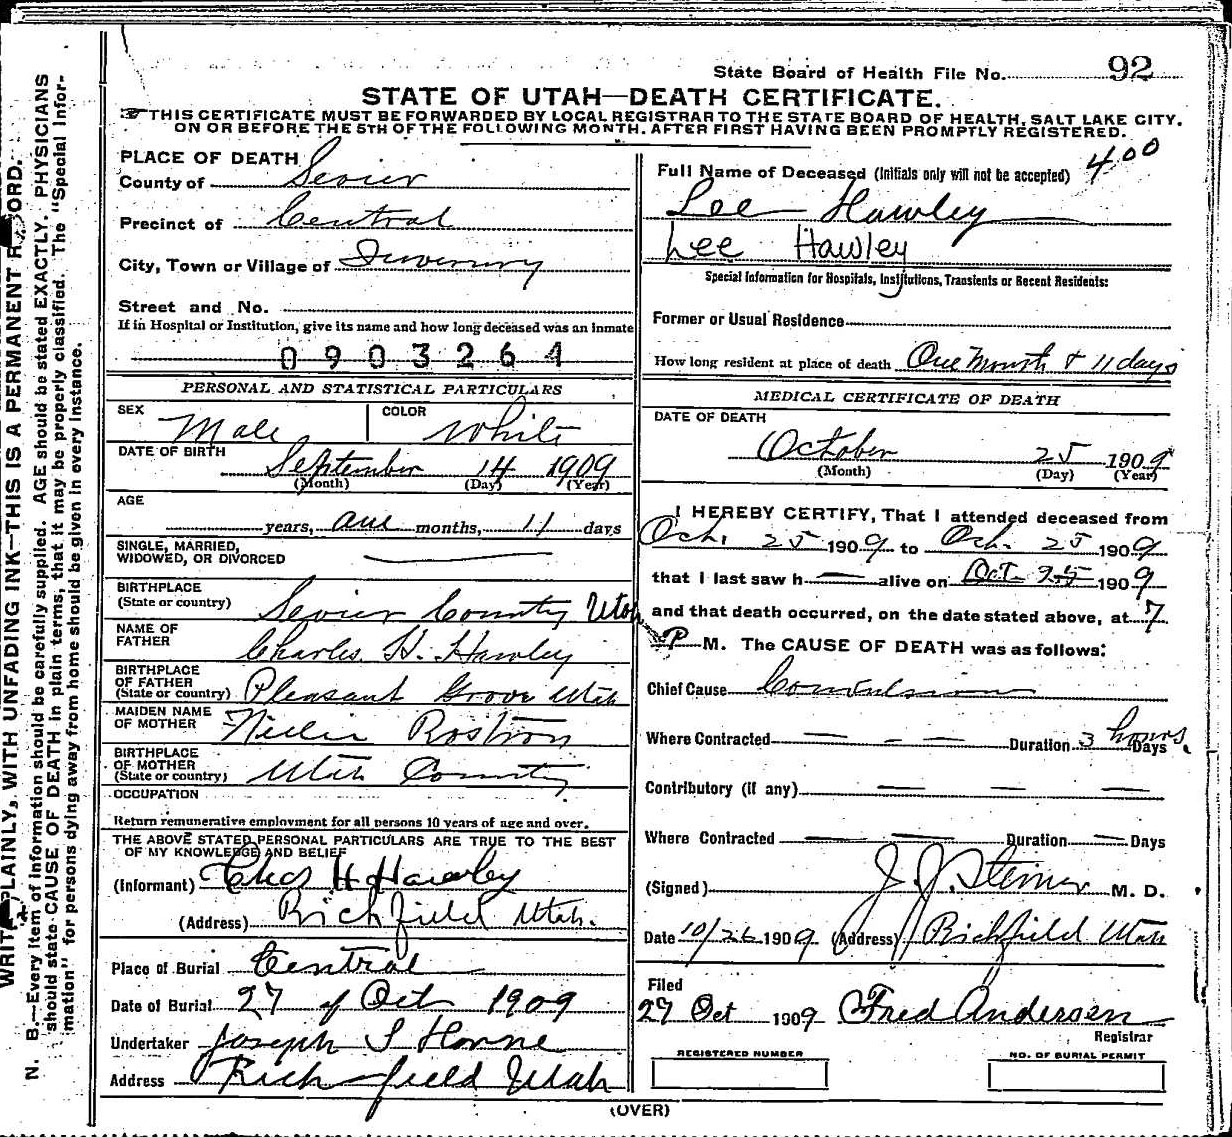 State Board of Health File No. 92
STATE OF UTAH—DEATH CERTIFICATE.
THIS CERTIFICATE MUST BE FORWARDED BY LOCAL REGISTRAR TO THE STATE BOARD OF HEALTH, SALT LAKE CITY,
ON OR BEFORE THE 5TH OF THE FOLLOWING MONTH, AFTER FIRST HAVING BEEN PROMPTLY REGISTERED.
PLACE OF DEATH
County of Sevier
Precinct of Central
City, Town or Village of
Street and No.
If in Hospital or Institution, give its name and how long deceased was an inmate
0903261
PERSONAL AND STATISTICAL PARTICULARS
SEX Male COLOR White
DATE OF BIRTH
September 14 1909
(Month) (Day) (Year)
AGE
years, one months, 11 days
SINGLE, MARRIED,
WIDOWED, OR DIVORCED
BIRTHPLACE
(State or country) Sevier County Utah
NAME OF
FATHER Charles H. Hawley
BIRTHPLACE
OF FATHER
(State or country) Pleasant Grove Utah
MAIDEN NAME
OF MOTHER Nellie Rostron
BIRTHPLACE
OF MOTHER
(State or country) Utah County
OCCUPATION
Return remunerative employment for all persons 10 years of age and over.
THE ABOVE STATED PERSONAL PARTICULARS ARE TRUE TO THE BEST
OF MY KNOWLEDGE AND BELIEF
(Informant) Chas H Hawley
(Address) Richfield Utah.
Place of Burial Central
Date of Burial 27 of Oct 1909
Undertaker Joseph S Horne
Address Richfield Utah
Full Name of Deceased (Initials only will not be accepted) 400
Lee Hawley
Lee Hawley
Special Information for Hospitals, Institutions, Transients or Recent Residents:
Former or Usual Residence
How long resident at place of death One Month & 11 days
MEDICAL CERTIFICATE OF DEATH
DATE OF DEATH
October 25 1909
(Month) (Day) (Year)
I HEREBY CERTIFY, That I attended deceased from
Oct. 25 1909 to Oct. 25 1909
that I last saw h — alive on Oct 25 1909
and that death occurred, on the date stated above, at 7
P M. The CAUSE OF DEATH was as follows:
Chief Cause Convulsions
Where Contracted — — — Duration 3 hours Days
Contributory (if any) — — —
Where Contracted — — Duration — Days
(Signed) J. J. Steiner M. D.
Date 10/26 1909 (Address) Richfield Utah
Filed
27 Oct 1909 Fred Andersen
Registrar
REGISTERED NUMBER NO. OF BURIAL PERMIT
(OVER)
WRITE PLAINLY, WITH UNFADING INK—THIS IS A PERMANENT RECORD.
N. B.—Every item of information should be carefully supplied. AGE should be stated EXACTLY. PHYSICIANS
should state CAUSE OF DEATH in plain terms, that it may be properly classified. The "Special Infor-
mation" for persons dying away from home should be given in every instance.